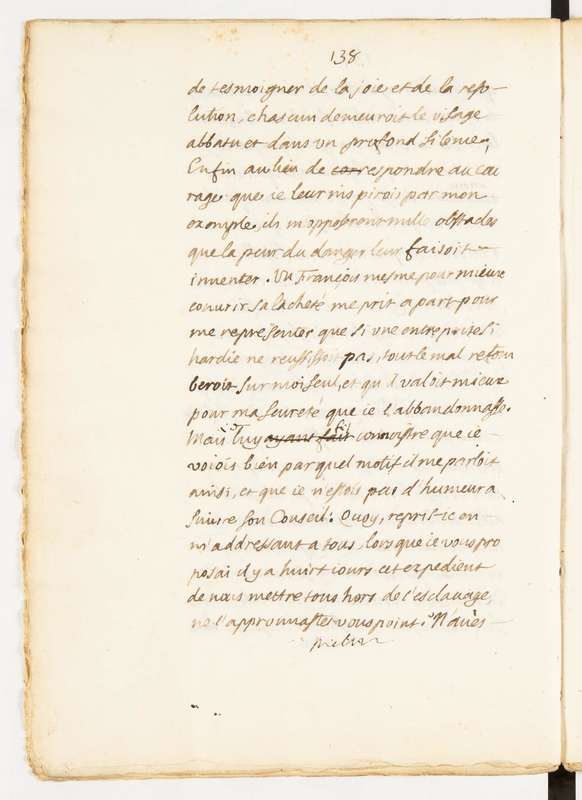 138
de tesmoigner de la joie et de la reso-
lution, chascun demeuroit le visage
abbatu et dans un profond silence,
Enfin au lieu de correspondre au cou
rage que ie leur inspirois par mon
exemple, ils m'opposerent mille obstacles
que la peur du danger leur faisoit
inventer. Un François mesme pour mieux
couvrir sa lacheté me prit a part pour
me representer que si une entreprise si
hardie ne reussissoit pas, tout le mal retom
beroit sur moi seul, et qu'il valoit mieux
pour ma seureté que ie l'abbandonnasse.
Mais ie luy ayant fait fis connoistre que ie
voiois bien par quel motif il me parloit
ainsi, et que ie n'estois pas d'humeur a
suivre son Conseil. Quoy, repris-ie en
m'addressant a tous, lors que ie vous pro
posai il y a huict iours cet expedient
de nous mettre tous hors de l'esclavage,
ne l'approuvastes vous point? N'avès